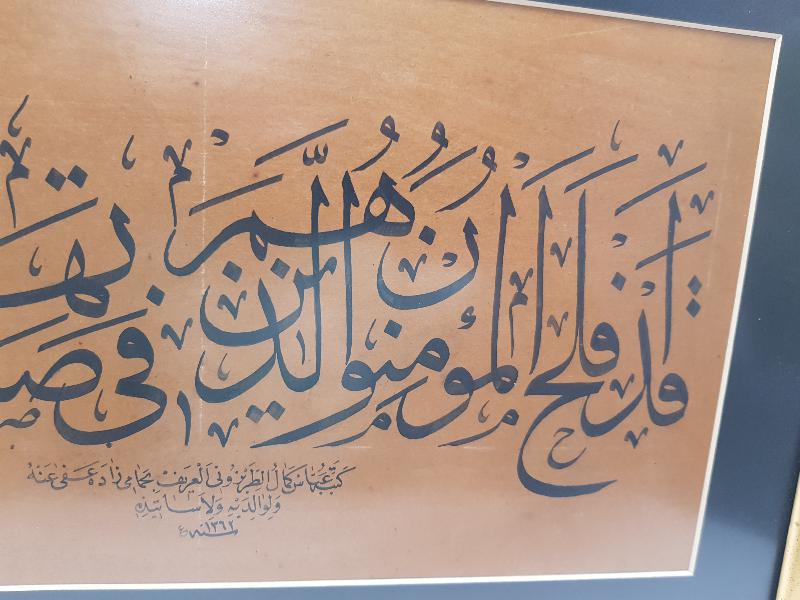 قد افلح المؤمنون الذين هم فى
كتبه عثمان كمال الطربزونى العريف بجامى زاده عفى عنه
ولوالديه ولاساتيذه
سنه ١٣٦٢